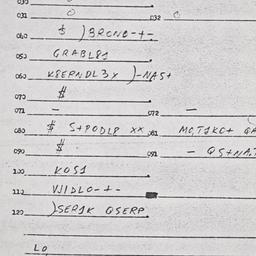 030
031 0 032 0
040 $ )BRONO-+-
050 GRABL81
060 K8ERNDL3X )-NAS+
070 $
071 - 072 -
080 $ S+PODL8 XX 081 MO,T1KO+ GA
090 $ 091 - QS+NA
100 KOS1
110 VJIDLO-+-
120 )SER1K QSERP
LO